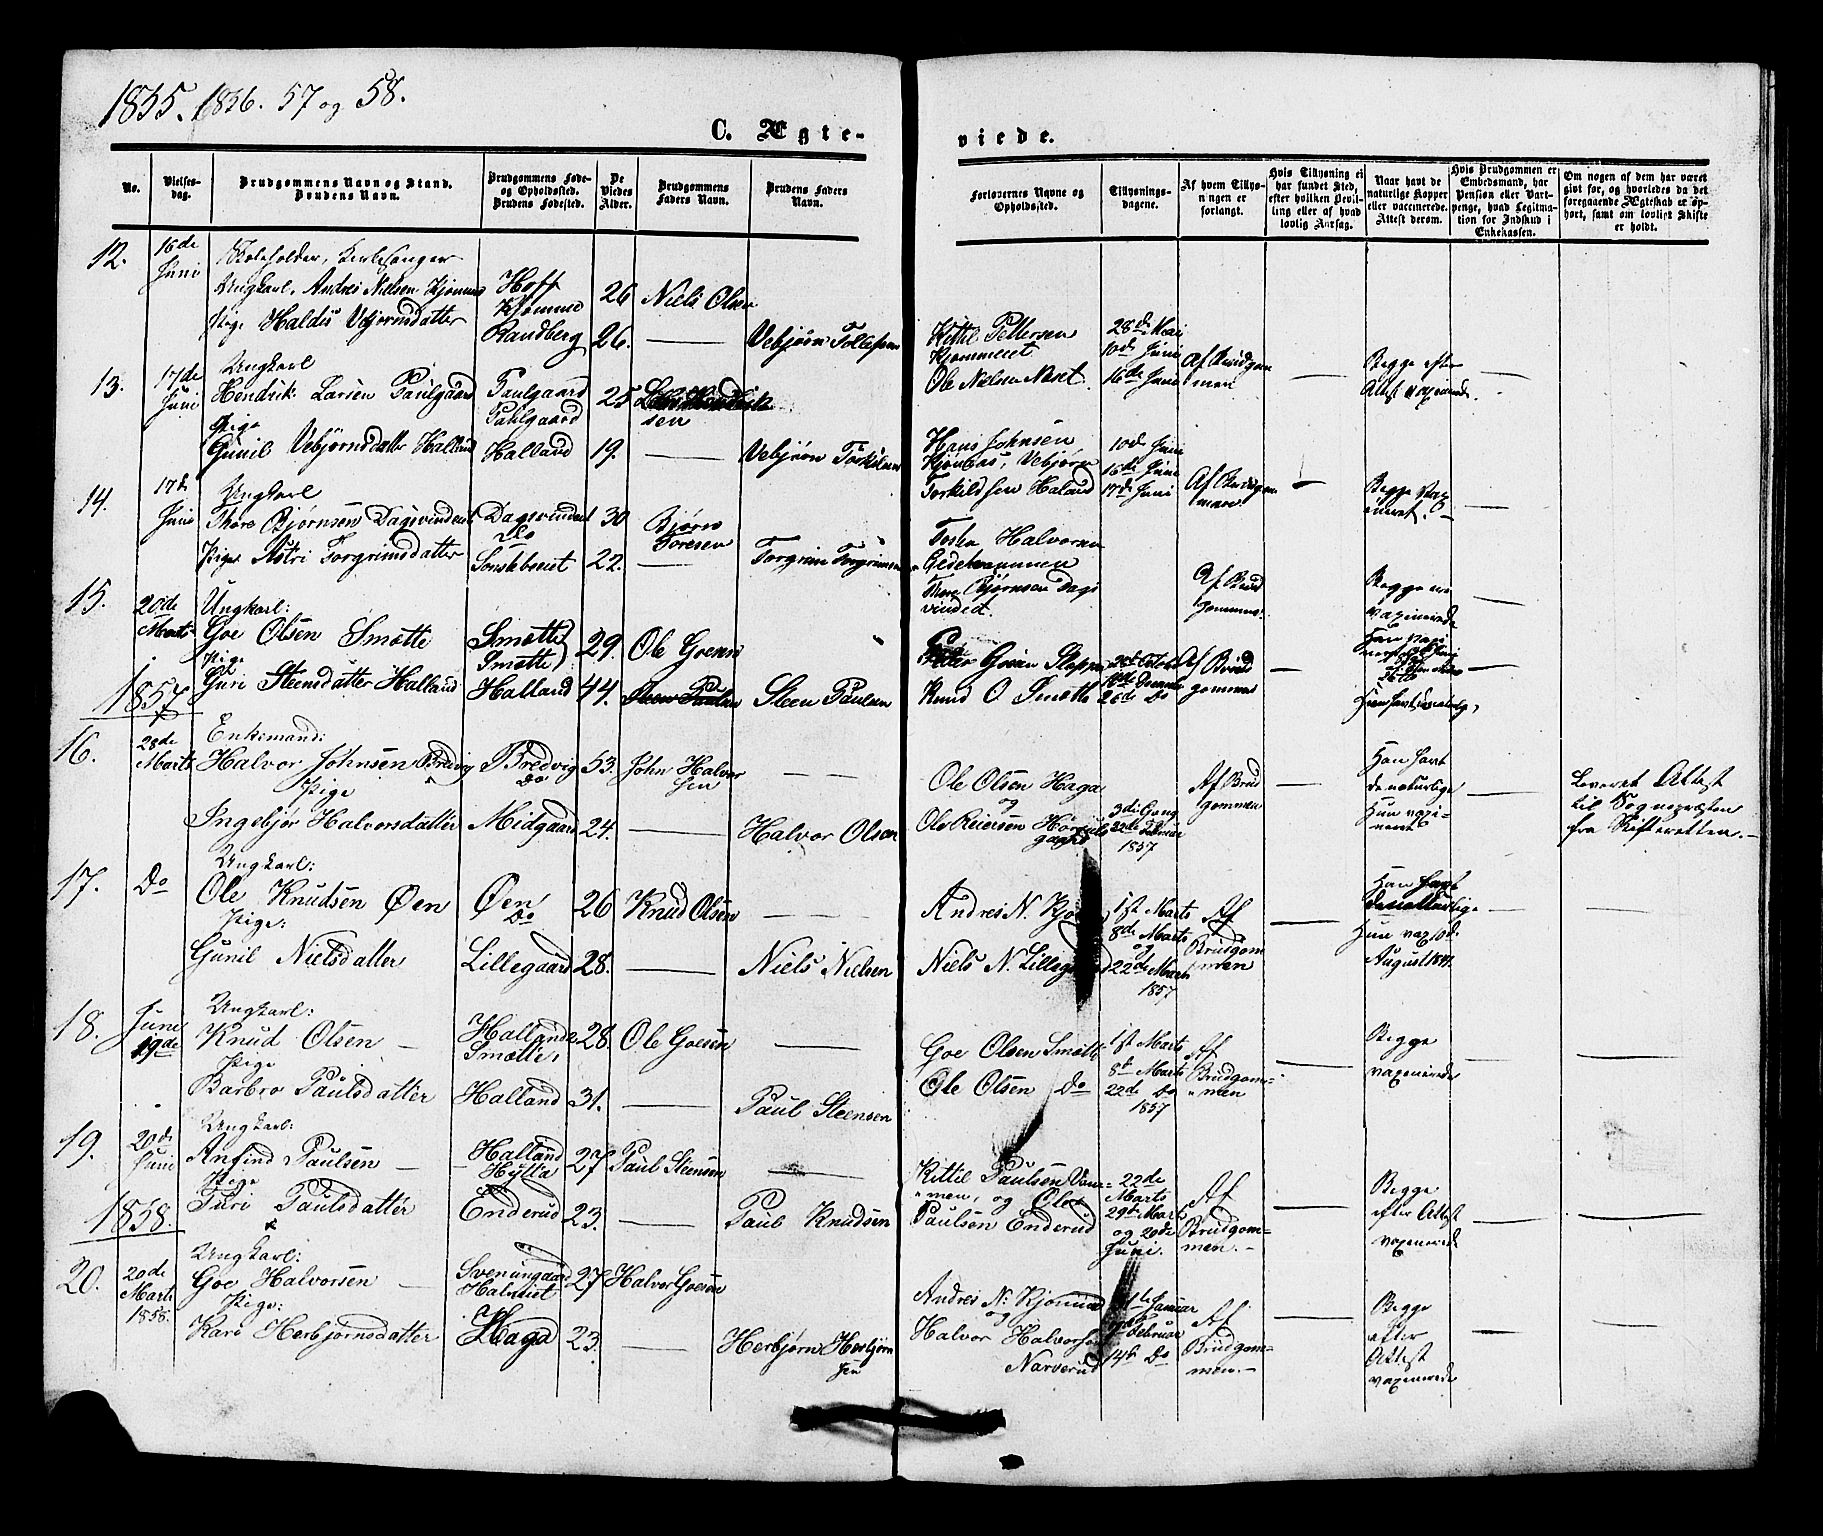 1855. 1856. 57 og 58.
C. Ægte-
viede.
No.
Vielses-
dag.
Brudgommens Navn og Stand.
Brudens Navn.
Brudgommens Føde-
og Opholdssted.
Brudens Fødested.
De
Viedes
Alder.
Brudgommens
Faders Navn.
Brudens Faders
Navn.
Forlovernes Navne og
Opholdssted.
Tillysnings-
dagene.
Af hvem Tillys-
ningen er
forlangt.
Hvis Tillysning ei
har fundet Sted,
efter hvilken Bevil-
ling eller af hvad
lovlig Aarsag.
Naar havt de
naturlige Kopper
eller vaccinerede.
Attest derom.
Hvis Brudgommen er
Embedsmand, har
Pension eller Vart-
penge, hvad Legitima-
tion for Indskud i
Enkekassen.
Om nogen af dem har været
gift før, og hvorledes da det
foregaaende Ægteskab er op-
hørt, samt om lovligt Skifte
er holdt.
12.
16de
Juni
Skoleholder, Kirkesanger
Ungkarl, Andres Nielsen Kjomme
Pige Haldis Vebjørnsdatter
Hoff
Kjomme
Randberg
26
26.
Niels Olsen
Vebjørn Tollefsen
Kittil Pettersen
Kjommeeiet
Ole Nielsen Næset
28de Mai
10de Juni
16de Juni
Af Brudgom
men
Begge efter
Attest vaxinerede.
13.
17de
Juni
Ungkarl
Hendrik Larsen Paulgaard
Pige
Gunil Vebjørnsdatter Halland
Paulgaard
Pahlgaard
Halland
25
19.
Lars Hendrik
sen
Vebjørn Torkilsen
Hans Johnsen
Kjonaas, Vebjørn
Torkildsen Haland
10de Juni
16de Juni
17de Juni
Af Brudgom
men
Begge vax
ineret.
14.
17de
Juni
Ungkarl
Thore Bjørnsen Dagsvindeiet
Pige Astri Torgrimsdatter
Dagsvindeiet
Do
30
22.
Bjørn
Toresen
Torgrim Torgrimsen
Halvorsen
Thore Bjørnsen Dags
vindeiet.
Af Brud
gommen
Begge ere
vaxinerede
15.
20de
Marts
Ungkarl:
Goe Olsen Smætte
Pige
Guri Steensdatter Halland
Smætte
Smætte
Halland
29.
44.
Ole Goesen
Steen Paulsen
Knud O. Smætte
26de Do
Af Brud
gommen
1857
16.
28de
Marts
Enkemand:
Halvor Johnsen Bredvig
Pige
Ingebjør Halvorsdatter
Bredvig
Do
Midgaard
53.
24.
John Halvor
sen
Halvor Olsen
Ole Olsen Haga
og
Ole Reiersen
3die Gang
22de Februar
1857
Af Brud
gommen
Han havt
de naturlige
Hun vaxi-
neret
Leveret Attest
til Sognepræsten
fra Skifteretten.
17.
Do
Ungkarl:
Ole Knudsen Øen
Pige:
Gunil Nielsdatter
Øen
Do
Lillegaard
26
28.
Knud Olsen
Niels Nielsen
Andres N. Kjo
Niels N. Lillegaard
1st Marts
8de Marts
og
22de Marts
1857
Af
Brudgom
men
Han havt
de naturlige
Hun vax 10de
August 1841.
18.
Juni
19de
Ungkarl:
Knud Olsen
Pige
Barbro Paulsdatter
Halland
Smætte,
Halland
28.
31.
Ole Goesen
Paul Steensen
Goe Olsen Smætte
Ole Olsen Do
1st Marts
8de Marts
22de Do
1857
Af
Brudgom-
men
Begge
vaxinerede
19.
20de
Juni
Ungkarl:
Anfind Paulsen
Pige
Turi Paulsdatter
Halland
Hylta
Enderud
27
23.
Paul Steensen
Paul Knudsen
Kittil Paulsen
men, og Ole
Paulsen Enderud
22de
Marts
29de Marts
og 20de
Juni.
Af
Brudgom-
men.
Begge
efter Attest
vaxinerede
1858.
20.
20de
Marts
1858.
Ungkarl:
Goe Halvorsen
Pige:
Kari Herbjørnsdatter
Svenungaard
Halvieiet
Haga
27
23.
Halvor Goesen
Herbjørn Herbjørn
sen
Andres N. Kjomme
og
Halvor Halvorsen
Narverud
Januar
7de Februar
14de Do
Af
Brudgom-
men.
Begge
efter
Attest
vaxinerede